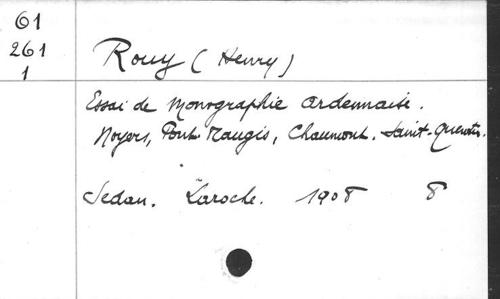 61
261
1
Rouy (Henry)
Essai de Monographie ardennaise.
Noyers, Pont Maugis, Chaumont. Saint-Quentin.
Sedan. Laroche. 1908 8